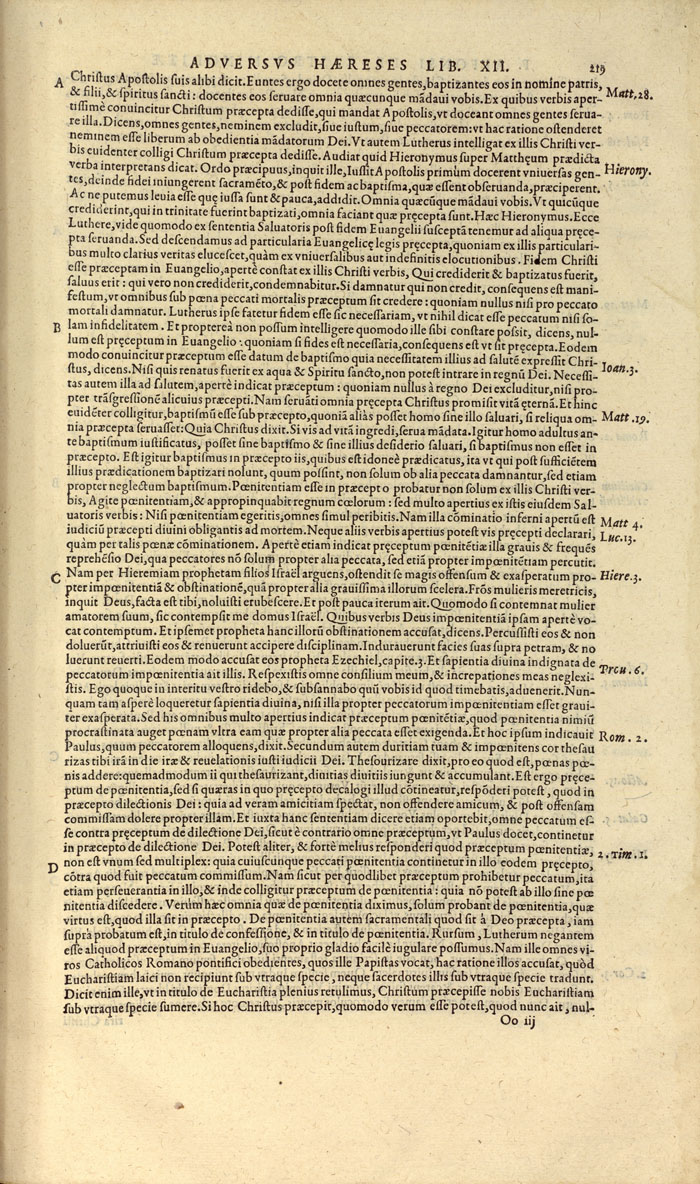 ADVERSVS HÆRESES LIB. XII. 219
A Christus Apostolis suis alibi dicit. Euntes ergo docete omnes gentes, baptizantes eos in nomine patris,
& filii, & spiritus sancti: docentes eos seruare omnia quæcunque mãdaui vobis. Ex quibus verbis aper- Matt. 28.
tissimè conuincitur Christum præcepta dedisse, qui mandat Apostolis, vt doceant omnes gentes serua-
re illa. Dicens, omnes gentes, neminem excludit, siue iustum, siue peccatorem: vt hac ratione ostenderet
neminem esse liberum ab obedientia mãdatorum Dei. Vt autem Lutherus intelligat ex illis Christi ver-
bis euidenter colligi Christum præcepta dedisse. Audiat quid Hieronymus super Matthęum prædicta
verba interpretans dicat. Ordo præcipuus, inquit ille, Iussit Apostolis primùm docerent vniuersas gen- Hierony.
tes, deinde fidei iniungerent sacramẽto, & post fidem ac baptisma, quæ essent obseruanda, præciperent.
Ac ne putemus leuia esse quę iussa sunt & pauca, addidit. Omnia quæcũque mãdaui vobis. Vt quicũque
crediderint, qui in trinitate fuerint baptizati, omnia faciant quæ pręcepta sunt. Hæc Hieronymus. Ecce
Luthere, vide quomodo ex sententia Saluatoris post fidem Euangelii susceptã tenemur ad aliqua pręce-
pta seruanda. Sed descendamus ad particularia Euangelicę legis pręcepta, quoniam ex illis particulari-
bus multo clarius veritas elucescet, quàm ex vniuersalibus aut indefinitis elocutionibus. Fidem Christi
esse præceptam in Euangelio, apertè constat ex illis Christi verbis, Qui crediderit & baptizatus fuerit,
saluus erit: qui vero non crediderit, condemnabitur. Si damnatur qui non credit, consequens est mani-
festum, vt omnibus sub pœna peccati mortalis præceptum sit credere: quoniam nullus nisi pro peccato
mortali damnatur. Lutherus ipse fatetur fidem esse sic necessariam, vt nihil dicat esse peccatum nisi so-
B lam infidelitatem. Et proptereà non possum intelligere quomodo ille sibi constare possit, dicens, nul-
lum est pręceptum in Euangelio: quoniam si fides est necessaria, consequens est vt sit pręcepta. Eodem
modo conuincitur præceptum esse datum de baptismo quia necessitatem illius ad salutẽ expressit Chri-
stus, dicens. Nisi quis renatus fuerit ex aqua & Spiritu sancto, non potest intrare in regnũ Dei. Necessi- Ioan. 3.
tas autem illa ad salutem, apertè indicat præceptum: quoniam nullus à regno Dei excluditur, nisi pro-
pter trãsgressionẽ alicuius pręcepti. Nam seruãti omnia pręcepta Christus promisit vitã ęternã. Et hinc
euidẽter colligitur, baptismũ esse sub præcepto, quoniã aliàs posset homo sine illo saluari, si reliqua om- Matt. 19.
nia præcepta seruasset: Quia Christus dixit. Si vis ad vitã ingredi, serua mãdata. Igitur homo adultus an-
te baptismum iustificatus, posset sine baptismo & sine illius desiderio saluari, si baptismus non esset in
præcepto. Est igitur baptismus in præcepto iis, quibus est idoneè prædicatus, ita vt qui post sufficiẽtem
illius prædicationem baptizari nolunt, quum possint, non solum ob alia peccata damnantur, sed etiam
propter neglectum baptismum. Pœnitentiam esse in præcepto probatur non solum ex illis Christi ver-
bis, Agite pœnitentiam, & appropinquabit regnum cœlorum: sed multo apertius ex istis eiusdem Sal-
uatoris verbis: Nisi pœnitentiam egeritis, omnes simul peribitis. Nam illa cõminatio inferni apertũ est Matt 4.
iudiciũ præcepti diuini obligantis ad mortem. Neque aliis verbis apertius potest vis pręcepti declarari, Luc. 13.
quàm per talis pœnæ cõminationem. Apertè etiam indicat pręceptum pœnitẽtiæ illa grauis & frequẽs
reprehẽsio Dei, qua peccatores nõ solum propter alia peccata, sed etiã propter impœnitẽtiam percutit.
C Nam per Hieremiam prophetam filios Israël arguens, ostendit se magis offensum & exasperatum pro- Hiere. 3.
pter impœnitentiã & obstinationẽ, quã propter alia grauissima illorum scelera. Frõs mulieris meretricis,
inquit Deus, facta est tibi, noluisti erubescere. Et post pauca iterum ait. Quomodo si contemnat mulier
amatorem suum, sic contempsit me domus Israël. Quibus verbis Deus impœnitentiã ipsam apertè vo-
cat contemptum. Et ipsemet propheta hanc illorũ obstinationem accusat, dicens. Percussisti eos & non
doluerũt, attriuisti eos & renuerunt accipere disciplinam. Indurauerunt facies suas supra petram, & no
luerunt reuerti. Eodem modo accusat eos propheta Ezechiel, capite. 3. Et sapientia diuina indignata de
peccatorum impœnitentia ait illis. Respexistis omne consilium meum, & increpationes meas neglexi- Prou. 6.
stis. Ego quoque in interitu vestro ridebo, & subsannabo quũ vobis id quod timebatis, aduenerit. Nun-
quam tam asperè loqueretur sapientia diuina, nisi illa propter peccatorum impœnitentiam esset graui-
ter exasperata. Sed his omnibus multo apertius indicat præceptum pœnitẽtiæ, quod pœnitentia nimiũ
procrastinata auget pœnam vltra eam quæ propter alia peccata esset exigenda. Et hoc ipsum indicauit
Paulus, quum peccatorem alloquens, dixit. Secundum autem duritiam tuam & impœnitens cor thesau Rom. 2.
rizas tibi irã in die iræ & reuelationis iusti iudicii Dei. Thesaurizare dixit, pro eo quod est, pœnas pœ-
nis addere: quemadmodum ii qui thesaurizant, diuitias diuitiis iungunt & accumulant. Est ergo pręce-
ptum de pœnitentia, sed si quæras in quo pręcepto decalogi illud cõtineatur, respõderi potest, quod in
præcepto dilectionis Dei: quia ad veram amicitiam spectat, non offendere amicum, & post offensam
commissam dolere propter illam. Et iuxta hanc sententiam dicere etiam oportebit, omne peccatum es-
se contra pręceptum de dilectione Dei, sicut è contrario omne præceptum, vt Paulus docet, continetur
in præcepto de dilectione Dei. Potest aliter, & fortè melius responderi quod præceptum pœnitentiæ, 2. Tim. 1.
D non est vnum sed multiplex: quia cuiuscunque peccati pœnitentia continetur in illo eodem pręcepto,
cõtra quod fuit peccatum commissum. Nam sicut per quodlibet præceptum prohibetur peccatum, ita
etiam perseuerantia in illo, & inde colligitur præceptum de pœnitentia: quia nõ potest ab illo sine pœ
nitentia discedere. Verùm hæc omnia quæ de pœnitentia diximus, solum probant de pœnitentia, quæ
virtus est, quod illa sit in præcepto. De pœnitentia autem sacramentali quod sit à Deo præcepta, iam
suprà probatum est, in titulo de confessione, & in titulo de pœnitentia. Rursum, Lutherum negantem
esse aliquod præceptum in Euangelio, suo proprio gladio facilè iugulare possumus. Nam ille omnes vi-
ros Catholicos Romano pontifici obedientes, quos ille Papistas vocat, hac ratione illos accusat, quòd
Eucharistiam laici non recipiunt sub vtraque specie, neque sacerdotes illis sub vtraque specie tradunt.
Dicit enim ille, vt in titulo de Eucharistia plenius retulimus, Christum præcepisse nobis Eucharistiam
sub vtraque specie sumere. Si hoc Christus præcepit, quomodo verum esse potest, quod nunc ait, nul-
Oo iij